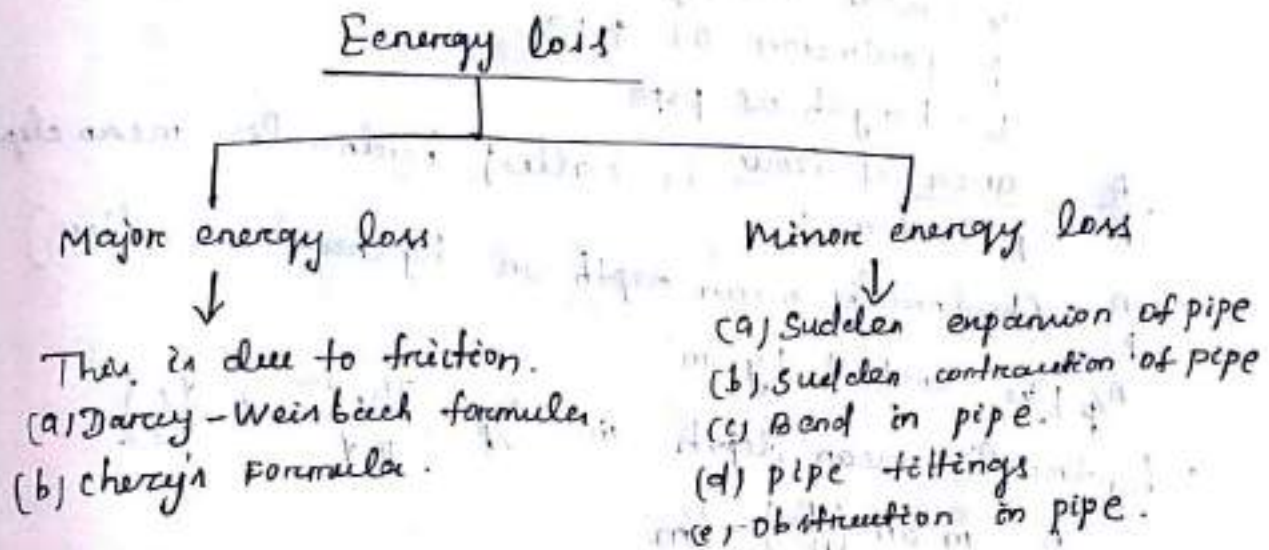 Eenergy loss
Major energy loss
Minor energy loss
This is due to friction.
(a) Darcy-Weisbach formula.
(b) chezy's Formula.
(a) Sudden expansion of pipe
(b) Sudden contraction of pipe
(c) Bend in pipe.
(d) pipe fittings
(e) obstruction in pipe.